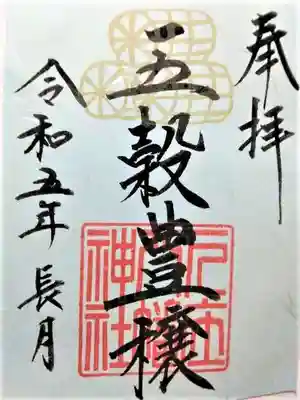 奉拝
五穀豊穣
令和五年 長月
神社